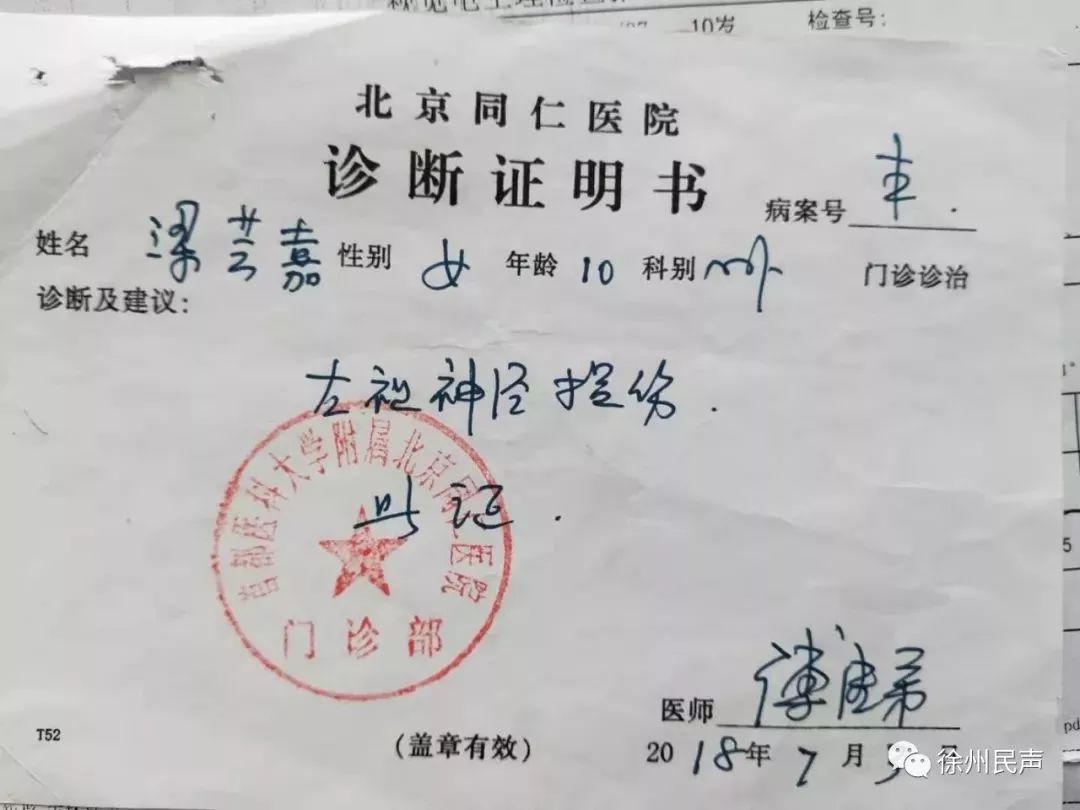 10岁 检查号:
北京同仁医院
诊断证明书
病案号
姓名 梁芸嘉 性别 女 年龄 10 科别 门诊诊治
诊断及建议:
左视神经损伤.
此证.
首都医科大学附属北京同仁医院
门诊部
医师
T52
(盖章有效)
2018年7月
徐州民声